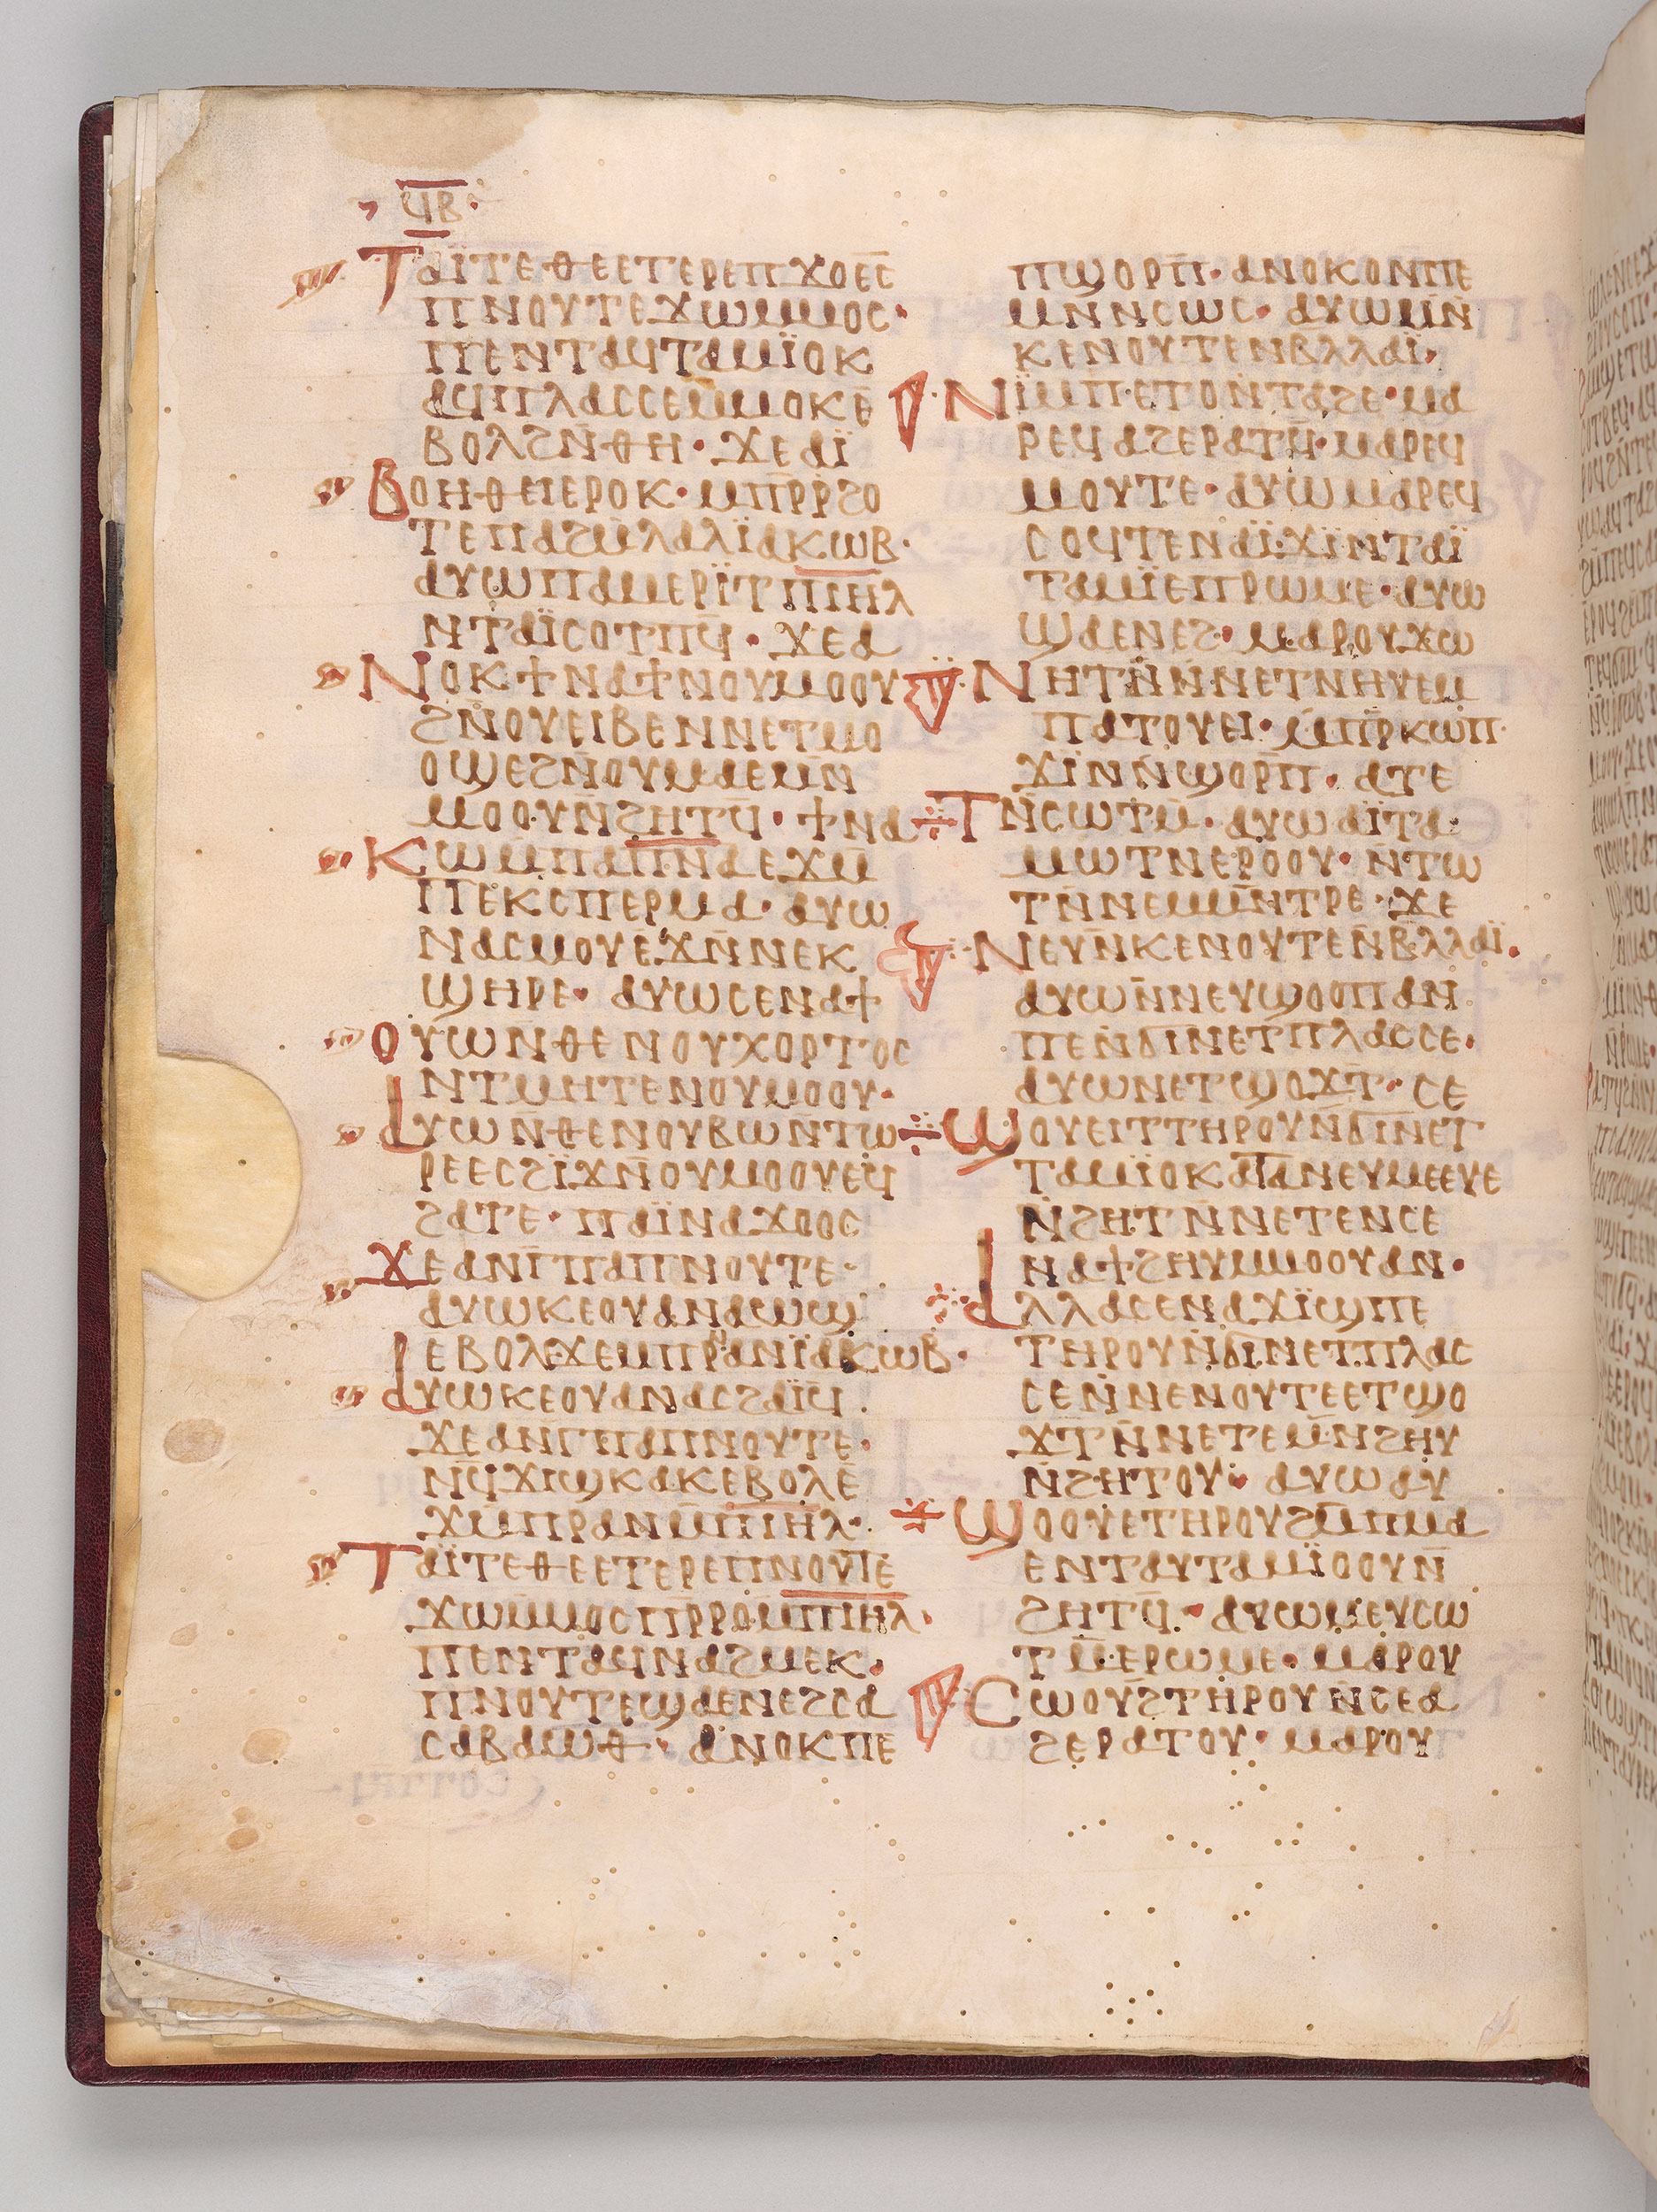 ϤⲂ
ⲦⲀⲒ̈ⲦⲈⲐⲈⲈⲦⲈⲢⲈⲠϪⲞⲈⲒⲤ
ⲠⲚⲞⲨⲦⲈϪⲰⲘⲘⲞⲤ·
ⲠⲈⲚⲦⲀϤⲦⲀⲘⲒ̈ⲞⲔ
ⲀϤⲠⲖⲀⲤⲤⲈⲘ̄ⲘⲞⲔⲈ̄
ⲂⲞⲖϨⲚ̄ⲐⲎ· ϪⲈⲀⲒ̈
ⲂⲞⲎⲐⲈⲒⲈⲢⲞⲔ· ⲘⲠ̄ⲢⲢ̄ϨⲞ
ⲦⲈⲠⲀϨⲘ̄ⲖⲀⲖⲒ̈ⲀⲔⲰⲂ·
ⲀⲨⲰⲠⲀⲘⲈⲢⲒ̈ⲦⲠⲒ̄Ⲏ̄Ⲗ̄
ⲚⲦⲀⲒ̈ⲤⲞⲦⲠϤ̄· ϪⲈⲀ
ⲚⲞⲔϮⲚⲀϮⲚⲞⲨⲘⲞⲞⲨ
ϨⲚ̄ⲞⲨⲈⲒⲂⲈⲚⲚⲈⲦⲘⲞ
ⲞϢⲈϨⲚⲞⲨⲘⲀⲈⲘⲚ̄
ⲘⲞⲞⲨⲚϨⲎⲦϤ̄· ϮⲚⲀ
ⲔⲰⲘ̄ⲠⲀⲠ̄Ⲛ̄ⲀⲈϪⲘ̄
ⲠⲈⲔⲤⲠⲈⲢⲘⲀ· ⲀⲨⲰ
ⲚⲀⲤⲘⲞⲨⲈϪⲚ̄ⲚⲈⲔ
ϢⲎⲢⲈ· ⲀⲨⲰⲤⲈⲚⲀϮ
ⲞⲨⲰⲚ̄ⲐⲈⲚⲞⲨⲬⲞⲢⲦⲞⲤ
ⲚⲦⲘⲎⲦⲈⲚⲞⲨⲘⲞⲞⲨ·
ⲀⲨⲰⲚ̄ⲐⲈⲚⲞⲨⲂⲰⲚ̄ⲦⲰ
ⲢⲈⲈⲤϨⲒ̈ϪⲚ̄ⲞⲨⲘⲞⲞⲨⲈϤ
ϨⲀⲦⲈ· ⲠⲀⲒ̈ⲚⲀϪⲞⲞⲤ
ϪⲈⲀⲚⲄ̄ⲠⲀⲠⲚⲞⲨⲦⲈ·
ⲀⲨⲰⲔⲈⲞⲨⲀⲚⲀⲰϢ
ⲈⲂⲞⲖⲈϪⲈⲘⲠⲢⲀⲚⲚⲒ̈ⲀⲔⲰⲂ·
ⲀⲨⲰⲔⲈⲞⲨⲀⲚⲀⲤϨⲀⲒ̈Ϥ̄
ϪⲈⲀⲚⲄⲠⲀⲠⲚⲞⲨⲦⲈ·
ⲚϤ̄ϪⲒϢⲔⲀⲔⲈⲂⲞⲖⲈ̄
ϪⲘ̄ⲠⲢⲀⲚⲘ̄ⲠⲒ̄Ⲏ̄Ⲗ̄·
ⲦⲀⲒ̈ⲦⲈⲐⲈⲈⲦⲈⲢⲈⲠⲚⲞⲨⲦⲈ
ϪⲰⲘⲘⲞⲤⲠⲢ̄ⲢⲞⲘⲠⲒ̄Ⲏ̄Ⲗ̄·
ⲠⲈⲚⲦⲀϤⲚⲀϨⲘⲈⲔ·
ⲠⲚⲞⲨⲦⲈϢⲀⲈⲚⲈϨⲤⲀ
ⲤⲀⲂⲀⲰⲐ· ⲀⲚⲞⲔⲠⲈ
ⲠϢⲞⲢⲠ̄· ⲀⲚⲞⲔⲞⲚ̄ⲠⲈ
ⲘⲚⲚⲤⲰⲤ· ⲀⲨⲰⲘ̄Ⲛ̄
ⲔⲈⲚⲞⲨⲦⲈⲚⲂⲖⲖⲀⲒ̈·
ⲚⲒ̈ⲘⲠⲈⲦⲞⲚ̄ⲦⲀϨⲈ· ⲘⲀ
ⲢⲈϤⲀϨⲈⲢⲀⲦϤ̄· ⲘⲀⲢⲈϤ
ⲘⲞⲨⲦⲈ· ⲀⲨⲰⲘⲀⲢⲈϤ
ⲤⲞϤⲦⲈⲚⲀⲒ̈· ϪⲒ̈ⲚⲦⲀⲒ̈
ⲦⲀⲘⲒ̈ⲈⲠⲢⲰⲘⲈ· ⲀⲨⲰ
ϢⲀⲈⲚⲈϨ· ⲘⲀⲢⲞⲨϪⲰ
ⲚⲎⲦⲚ̄Ⲛ̄ⲚⲈⲦⲚⲎⲨⲈⲘ
ⲠⲀⲦⲞⲨⲈⲒ· ⲘⲠⲢ̄ⲔⲰⲠ·
ϪⲒ̈ⲚⲚ̄ϢⲞⲢⲠ· ⲀⲦⲈ
ⲦⲚ̄ⲤⲰⲦⲘ̄· ⲀⲨⲰⲀⲒ̈ⲦⲀ
ⲘⲰⲦⲚⲈⲢⲞⲞⲨ· Ⲛ̄ⲦⲰ
ⲦⲚ̄ⲚⲈⲘⲘⲚ̄ⲦⲢⲈ· ϪⲈ
ⲚⲈⲨⲚ̄ⲔⲈⲚⲞⲨⲦⲈⲚ̄ⲂⲖⲖⲀⲒ̈·
ⲀⲨⲰⲚ̄ⲚⲈⲨϢⲞⲞⲠⲀⲚ
ⲠⲈⲚ̄ϬⲒⲚⲈⲦⲠⲖⲀⲤⲤⲈ·
ⲀⲨⲰⲚⲈⲦϢⲞϪⲦ̄· ⲤⲈ
ϢⲞⲨⲈⲒⲦⲦⲎⲢⲞⲨⲚ̄ϬⲒⲚⲈⲦ
ⲦⲀⲘⲒ̈ⲞⲔⲀⲦⲀⲚⲈⲨⲘⲈⲈⲨⲈ
Ⲛ̄ϨⲎⲦⲚ̄ⲚⲈⲦⲈⲚⲤⲈ
ⲚⲀϮϨⲎⲨⲘⲘⲞⲞⲨⲀⲚ·
ⲀⲖⲖⲀⲤⲈⲚⲀϪⲒ̈ϢⲒⲠⲈ
ⲦⲎⲢⲞⲨⲚ̄ϬⲒⲚⲈⲦⲠⲖⲀⲤ
ⲤⲈⲚ̄ⲚⲈⲚⲞⲨⲦⲈⲈⲦϢⲞ
ϪⲦ̄Ⲛ̄ⲚⲈⲦⲈⲘⲚϨⲎⲨ
Ⲛ̄ϨⲎⲦⲞⲨ· ⲀⲨⲰⲀⲨ
ϢⲞⲞⲨⲈⲦⲎⲢⲞⲨϨⲘ̄ⲠⲘⲀ
ⲈⲚⲦⲀⲨⲦⲀⲘⲒ̈ⲞⲞⲨⲚ̄
ϨⲎⲦϤ̄· ⲀⲨⲰⲘⲈⲨⲤⲰ
ⲦⲘ̄ⲈⲢⲰⲘⲈ· ⲘⲀⲢⲞⲨ
ⲤⲰⲞⲨϨⲦⲎⲢⲞⲨⲚ̄ⲤⲈⲀ
ϨⲈⲢⲀⲦⲞⲨ· ⲘⲀⲢⲞⲨ